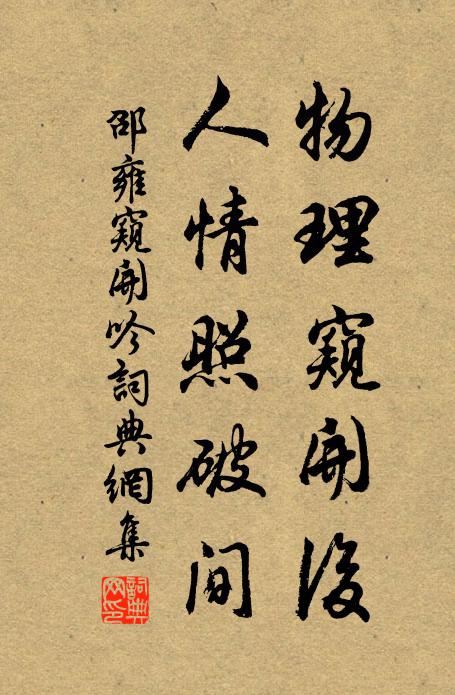 物理窺開後
人情照破間
邵雍窺開吟詞典網集
詞典網印